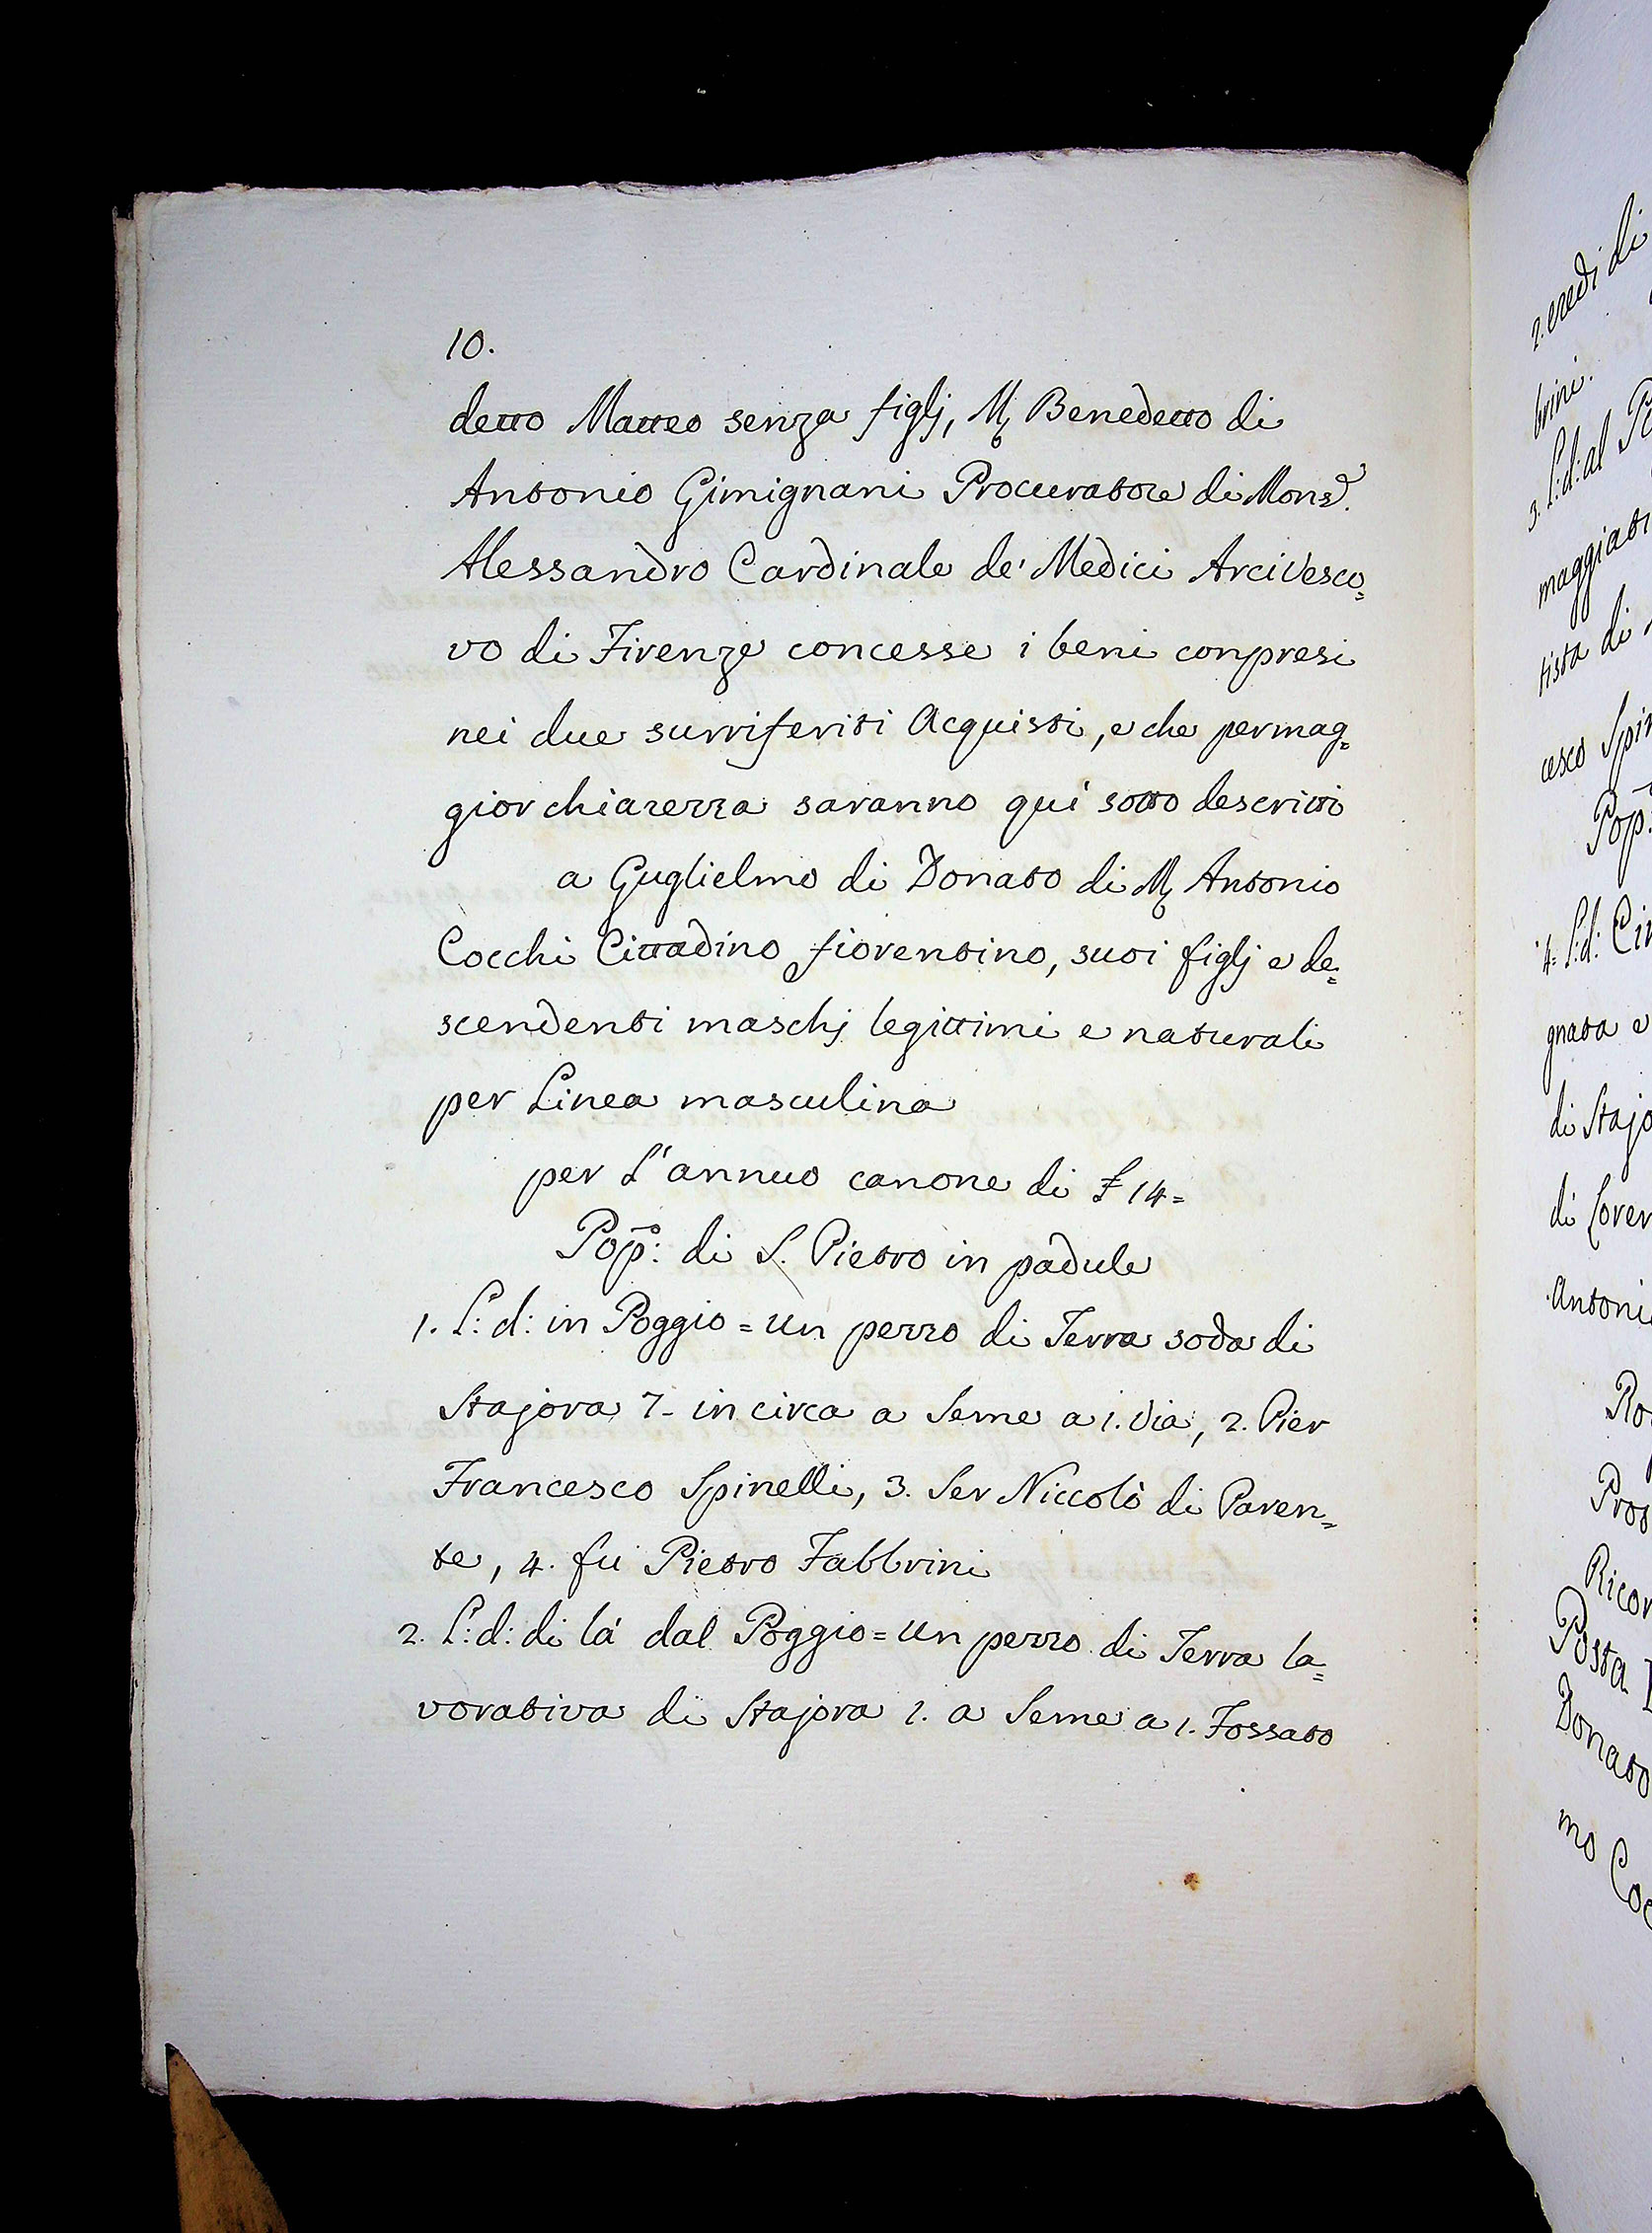 10.
detto Matteo senza figlj, M. Benedetto di
Antonio Gimignani Procuratore di Monsr.
Alessandro Cardinale de' Medici Arcivesco=
vo di Firenze concesse i beni conpresi
nei due surriferiti Acquisti, e che per mag=
gior chiarezza saranno qui sotto descritti
a Guglielmo di Donato di M. Antonio
Cocchi Cittadino fiorentino, suoi figlj e de=
scendenti maschj legittimi e naturali
per Linea masculina
per L'annuo canone di £ 14=
Popo: di S. Pietro in padule
1. L: d: in Poggio = un pezzo di Terra soda di
Stajora 7- in circa a Seme a 1. via, 2. Pier
Francesco Spinelli, 3. Ser Niccolò di Paren=
te, 4. fu Pietro Fabbrini
2. L: d: di là dal Poggio = un pezzo di Terra la=
vorativa di Stajora 2. a Seme a 1. Fossato
2. eredi di
brini.
3. L: d: al
maggiati
tista di
cesco
Pop
4= L: d:
gnata e
di Stajo
di Loren
Antoni
Ricor
Posta
Donato
mo Coc